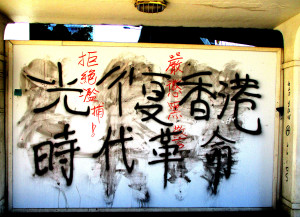 光復香港
時代革命
拒絕濫捕!
嚴懲黑警